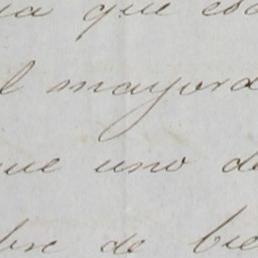 ia que es
l mayord
que uno d
bre de bie